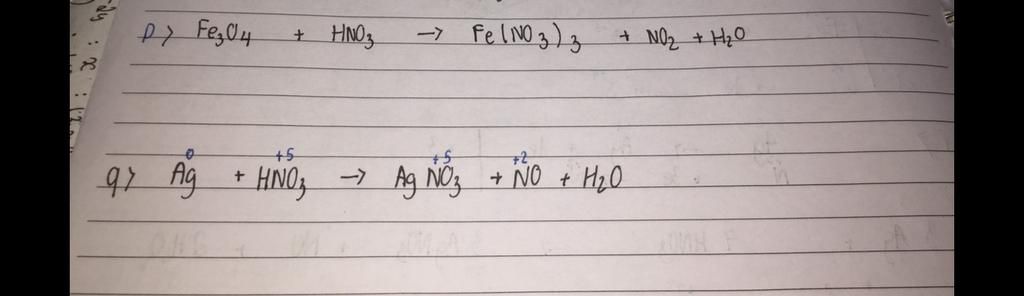 p> Fe₃O₄ + HNO₃ → Fe(NO₃)₃ + NO₂ + H₂O
0 +5 +5 +2
q> Ag + HNO₃ → AgNO₃ + NO + H₂O